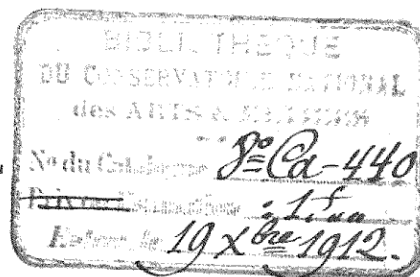 BIBLIOTHÈQUE
DU CONSERVATOIRE NATIONAL
des ARTS & MÉTIERS
N° du Catalogue 8° Ca-440
Prix ou Estimation : 1 f,
Entrée, le 19 Xbre 1912.